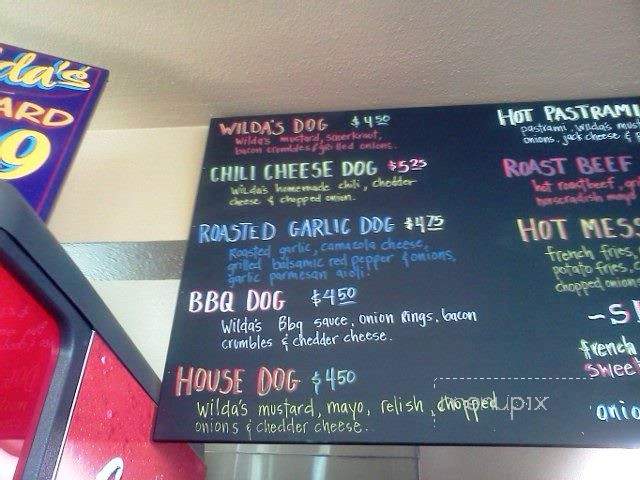 WILDA'S DOG $4.50
Wilda's mustard, sauerkraut,
bacon crumbles & grilled onions.
CHILI CHEESE DOG $5.25
Wilda's homemade chili, chedder
cheese & chopped onion.
ROASTED GARLIC DOG $4.75
Roasted garlic, camazola cheese,
grilled balsamic red pepper & onions,
garlic parmesan aioli.
BBQ DOG $4.50
Wilda's Bbq sauce, onion rings, bacon
crumbles & chedder cheese.
HOUSE DOG $4.50
Wilda's mustard, mayo, relish, chopped
onions & chedder cheese.
HOT PASTRAMI
pastrami, wilda's must
onions, jack cheese &
ROAST BEEF
hot roastbeef, gri
horseradish mayo
HOT MESS
french fries,
potato fries,
chopped onion
french
sweet
onio
lda's
ARD
9
menupix